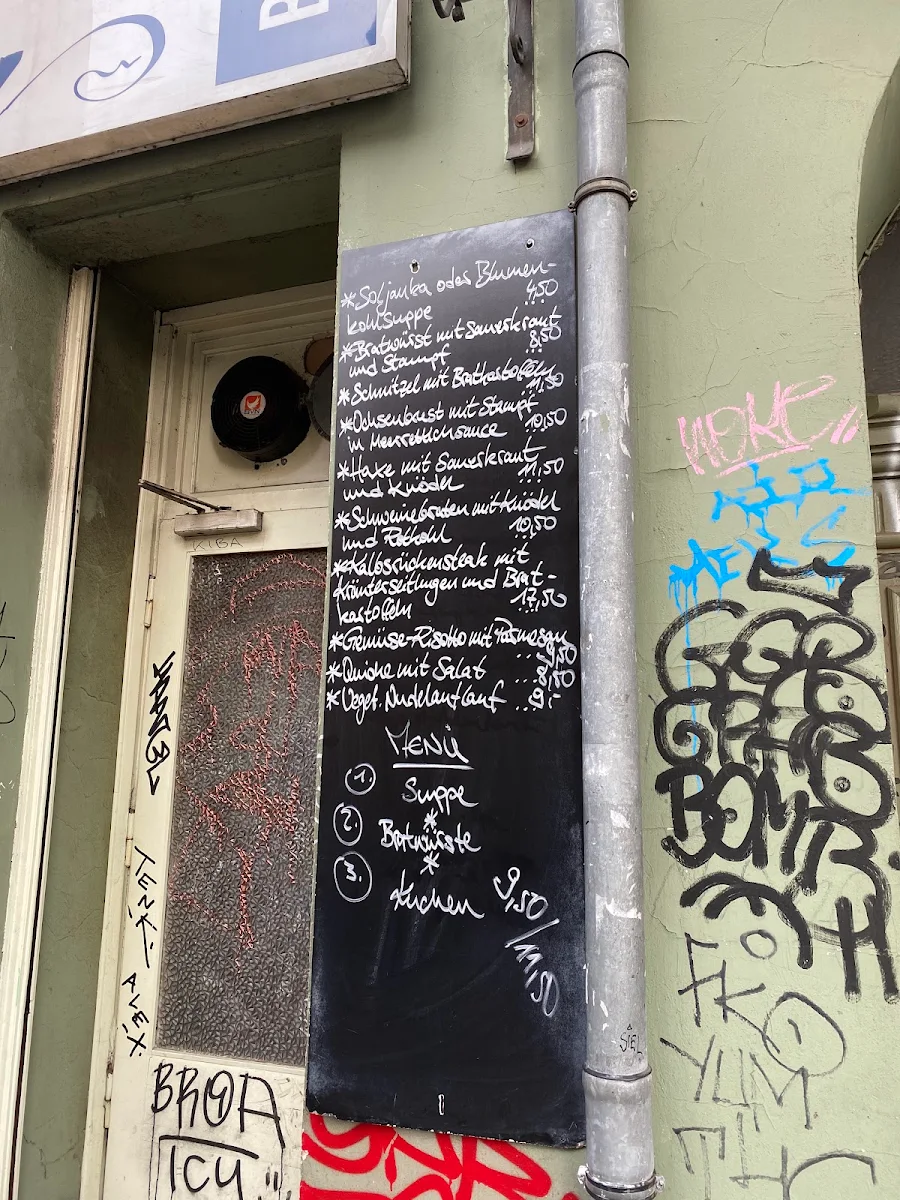 B
*Soljanka oder Blumen-
kohlsuppe 4,50
*Bratwurst mit Sauerkraut
und Stampf 8,50
*Schnitzel mit Bratkartoffeln
11,50
*Ochsenbrust mit Stampf
in Meerrettichsauce 10,50
*Hake mit Sauerkraut
und Knödel 11,50
*Schweinebraten mit Knödel
und Rotkohl 10,50
*Kalbsrückensteak mit
Kräuterseitlingen und Brat-
kartoffeln 17,50
*Gemüse-Risotto mit Parmesan
...9,50
*Quiche mit Salat ...8,50
*Veget. Nudelauflauf ...9,-
MENÜ
1. Suppe
*
2. Bratwürste
*
3. Kuchen
9,50/11,50
KIBA
TENKI
ALEX
BROA
ICU
SIEL
BOMB
FK
YUM